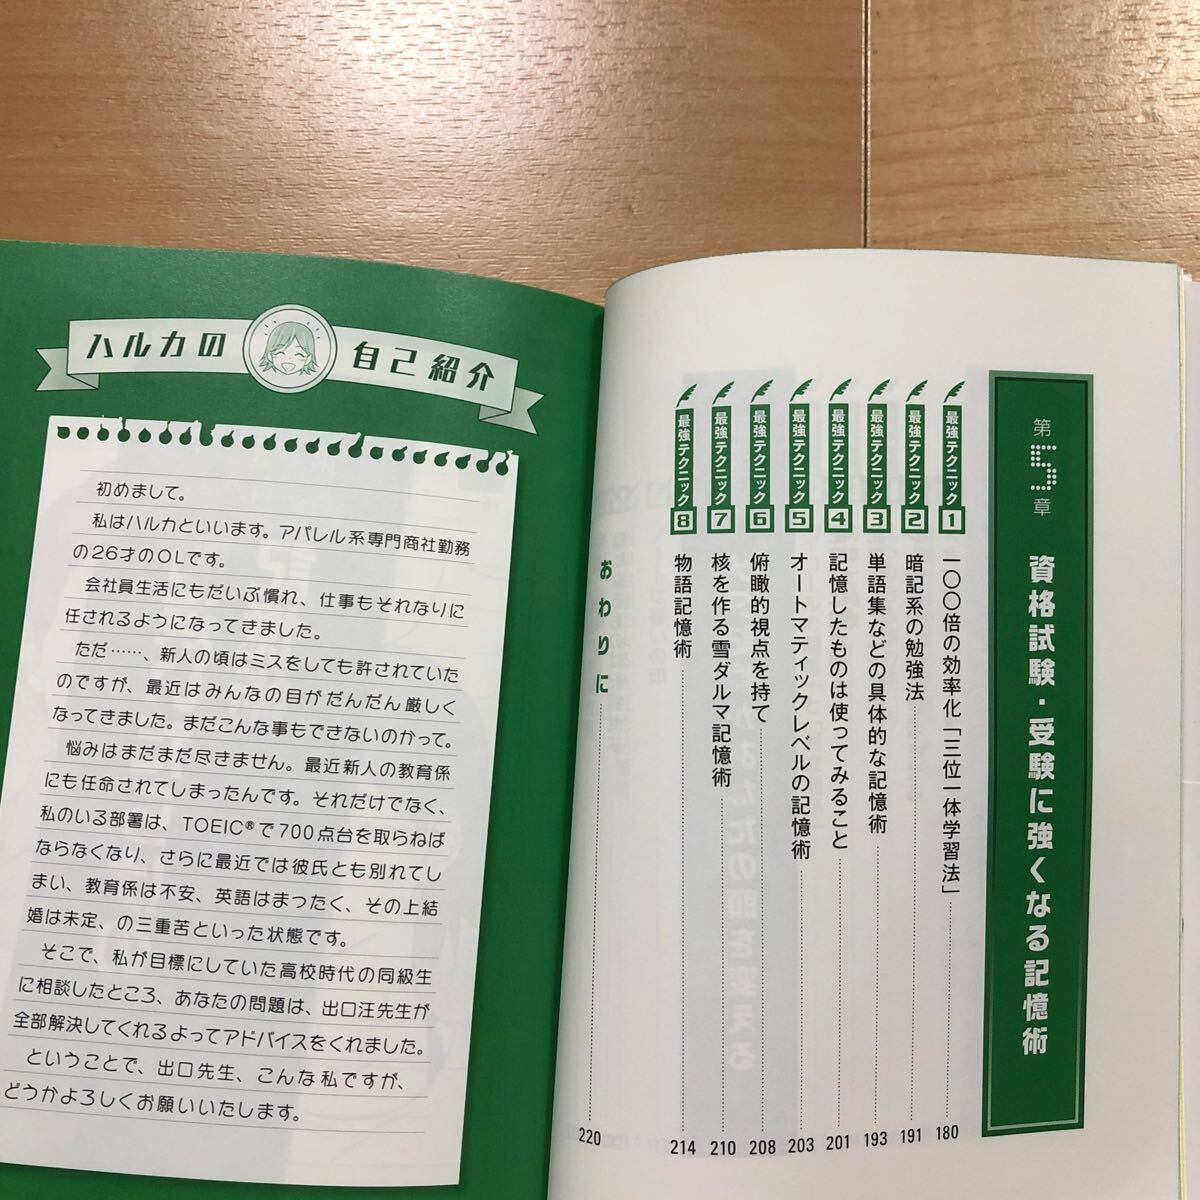 ハルカの自己紹介
初めまして。
私はハルカといいます。アパレル系専門商社勤務
の26才のOLです。
会社員生活にもだいぶ慣れ、仕事もそれなりに
任されるようになってきました。
ただ……、新人の頃はミスをしても許されていた
のですが、最近はみんなの目がだんだん厳しく
なってきました。まだこんな事もできないのかって。
悩みはまだまだ尽きません。最近新人の教育係
にも任命されてしまったんです。それだけでなく、
私のいる部署は、TOEIC®で700点台を取らねば
ならなくなり、さらに最近では彼氏とも別れてし
まい、教育係は不安、英語はまったく、その上結
婚は未定、の三重苦といった状態です。
そこで、私が目標にしていた高校時代の同級生
に相談したところ、あなたの問題は、出口汪先生が
全部解決してくれるよってアドバイスをくれました。
ということで、出口先生、こんな私ですが、
どうかよろしくお願いいたします。
第5章 資格試験・受験に強くなる記憶術
最強テクニック1 一〇〇倍の効率化「三位一体学習法」 180
最強テクニック2 暗記系の勉強法 191
最強テクニック3 単語集などの具体的な記憶術 193
最強テクニック4 記憶したものは使ってみること 201
最強テクニック5 オートマティックレベルの記憶術 203
最強テクニック6 俯瞰的視点を持て 208
最強テクニック7 核を作る雪ダルマ記憶術 210
最強テクニック8 物語記憶術 214
おわりに 220